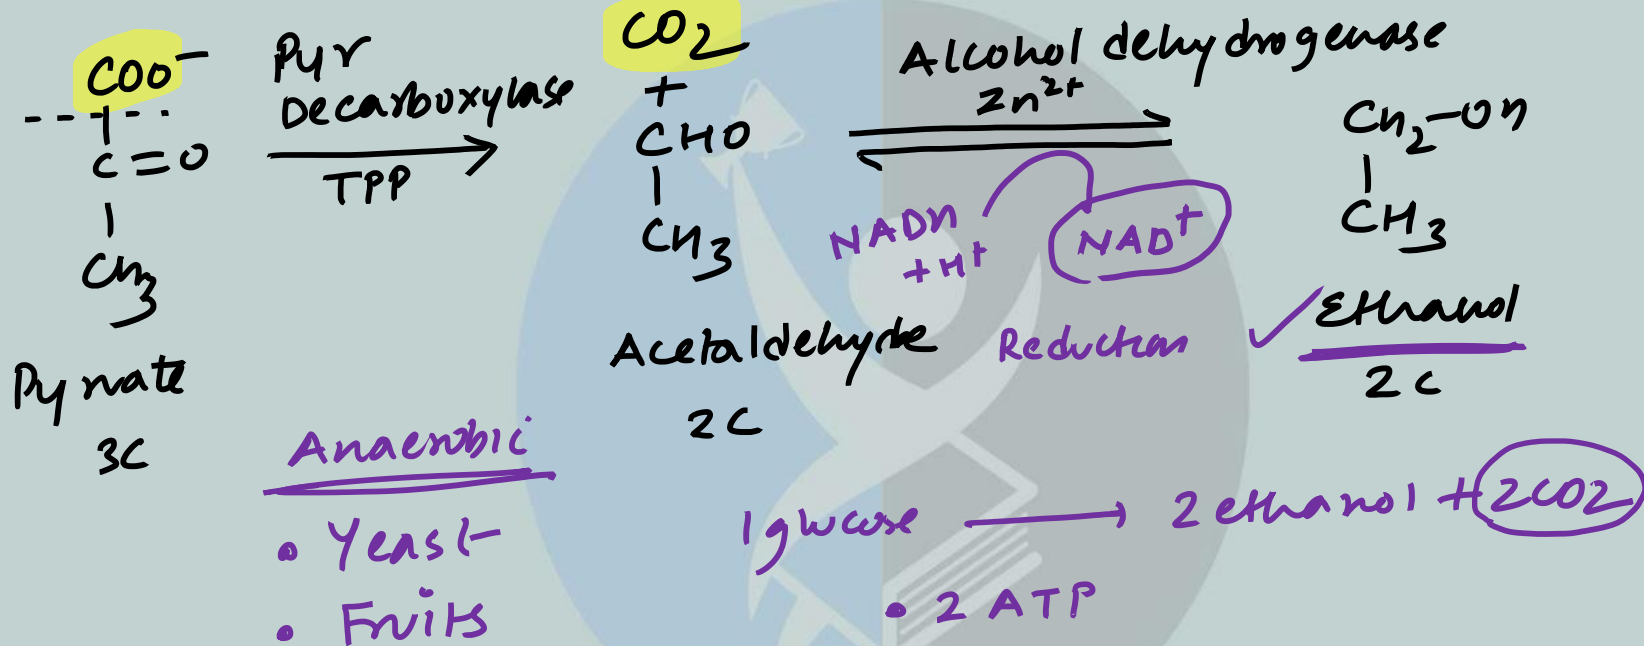 COO⁻
C=O
CH3
Pyruvate
3C
Pyr
Decarboxylase
TPP
CO2
+
CHO
CH3
Acetaldehyde
2C
Alcohol dehydrogenase
Zn²⁺
NADH
+H⁺
NAD⁺
Reduction
CH2-OH
CH3
✓ Ethanol
2C
Anaerobic
• Yeast
• Fruits
1 glucose → 2 ethanol + 2CO2
• 2 ATP